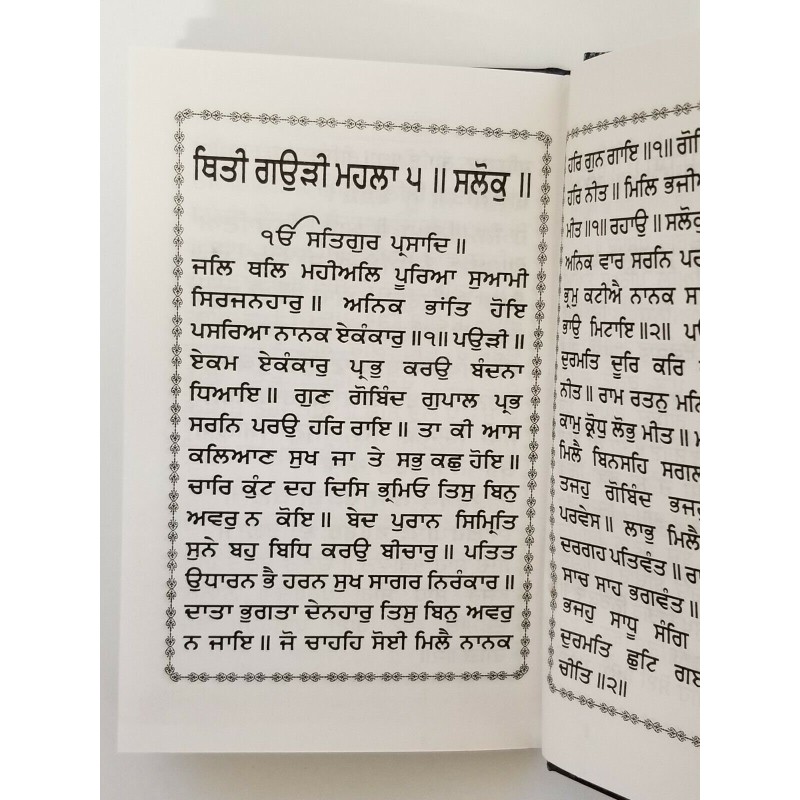 ਥਿਤੀ ਗਉੜੀ ਮਹਲਾ ੫ ॥ ਸਲੋਕੁ ॥
ੴ ਸਤਿਗੁਰ ਪ੍ਰਸਾਦਿ ॥
ਜਲਿ ਥਲਿ ਮਹੀਅਲਿ ਪੂਰਿਆ ਸੁਆਮੀ
ਸਿਰਜਨਹਾਰੁ ॥ ਅਨਿਕ ਭਾਂਤਿ ਹੋਇ
ਪਸਰਿਆ ਨਾਨਕ ਏਕੰਕਾਰੁ ॥੧॥ ਪਉੜੀ ॥
ਏਕਮ ਏਕੰਕਾਰੁ ਪ੍ਰਭੁ ਕਰਉ ਬੰਦਨਾ
ਧਿਆਇ ॥ ਗੁਣ ਗੋਬਿੰਦ ਗੁਪਾਲ ਪ੍ਰਭ
ਸਰਨਿ ਪਰਉ ਹਰਿ ਰਾਇ ॥ ਤਾ ਕੀ ਆਸ
ਕਲਿਆਣ ਸੁਖ ਜਾ ਤੇ ਸਭੁ ਕਛੁ ਹੋਇ ॥
ਚਾਰਿ ਕੁੰਟ ਦਹ ਦਿਸਿ ਭ੍ਰਮਿਓ ਤਿਸੁ ਬਿਨੁ
ਅਵਰੁ ਨ ਕੋਇ ॥ ਬੇਦ ਪੁਰਾਨ ਸਿਮ੍ਰਿਤਿ
ਸੁਨੇ ਬਹੁ ਬਿਧਿ ਕਰਉ ਬੀਚਾਰੁ ॥ ਪਤਿਤ
ਉਧਾਰਨ ਭੈ ਹਰਨ ਸੁਖ ਸਾਗਰ ਨਿਰੰਕਾਰ ॥
ਦਾਤਾ ਭੁਗਤਾ ਦੇਨਹਾਰੁ ਤਿਸੁ ਬਿਨੁ ਅਵਰੁ
ਨ ਜਾਇ ॥ ਜੋ ਚਾਹਹਿ ਸੋਈ ਮਿਲੈ ਨਾਨਕ
ਹਰਿ ਗੁਨ ਗਾਇ ॥੧॥
ਹਰਿ ਨੀਤ ॥ ਮਿਲਿ
ਮੀਤ ॥੧॥ ਰਹਾਉ ॥ ਸਲੋਕੁ
ਅਨਿਕ ਵਾਰ ਸਰਨਿ
ਭ੍ਰਮੁ ਕਟੀਐ ਨਾਨਕ
ਭਾਉ ਮਿਟਾਇ ॥੨॥
ਦੁਰਮਤਿ ਦੂਰਿ ਕਰਿ
ਨੀਤ ॥ ਰਾਮ ਰਤਨੁ
ਕਾਮੁ ਕ੍ਰੋਧੁ ਲੋਭੁ ਮੀਤ ॥
ਮਿਲੈ ਬਿਨਸਹਿ ਸਗਲ
ਤਜਹੁ ਗੋਬਿੰਦ ਭਜਹੁ
ਪਰਵੇਸ ॥ ਲਾਭੁ ਮਿਲੈ
ਦਰਗਹ ਪਤਿਵੰਤ ॥
ਸਾਚ ਸਾਹ ਭਗਵੰਤ ॥
ਭਜਹੁ ਸਾਧੂ ਸੰਗਿ
ਦੁਰਮਤਿ ਛੁਟਿ ਗਈ
ਚੀਤਿ ॥੨॥